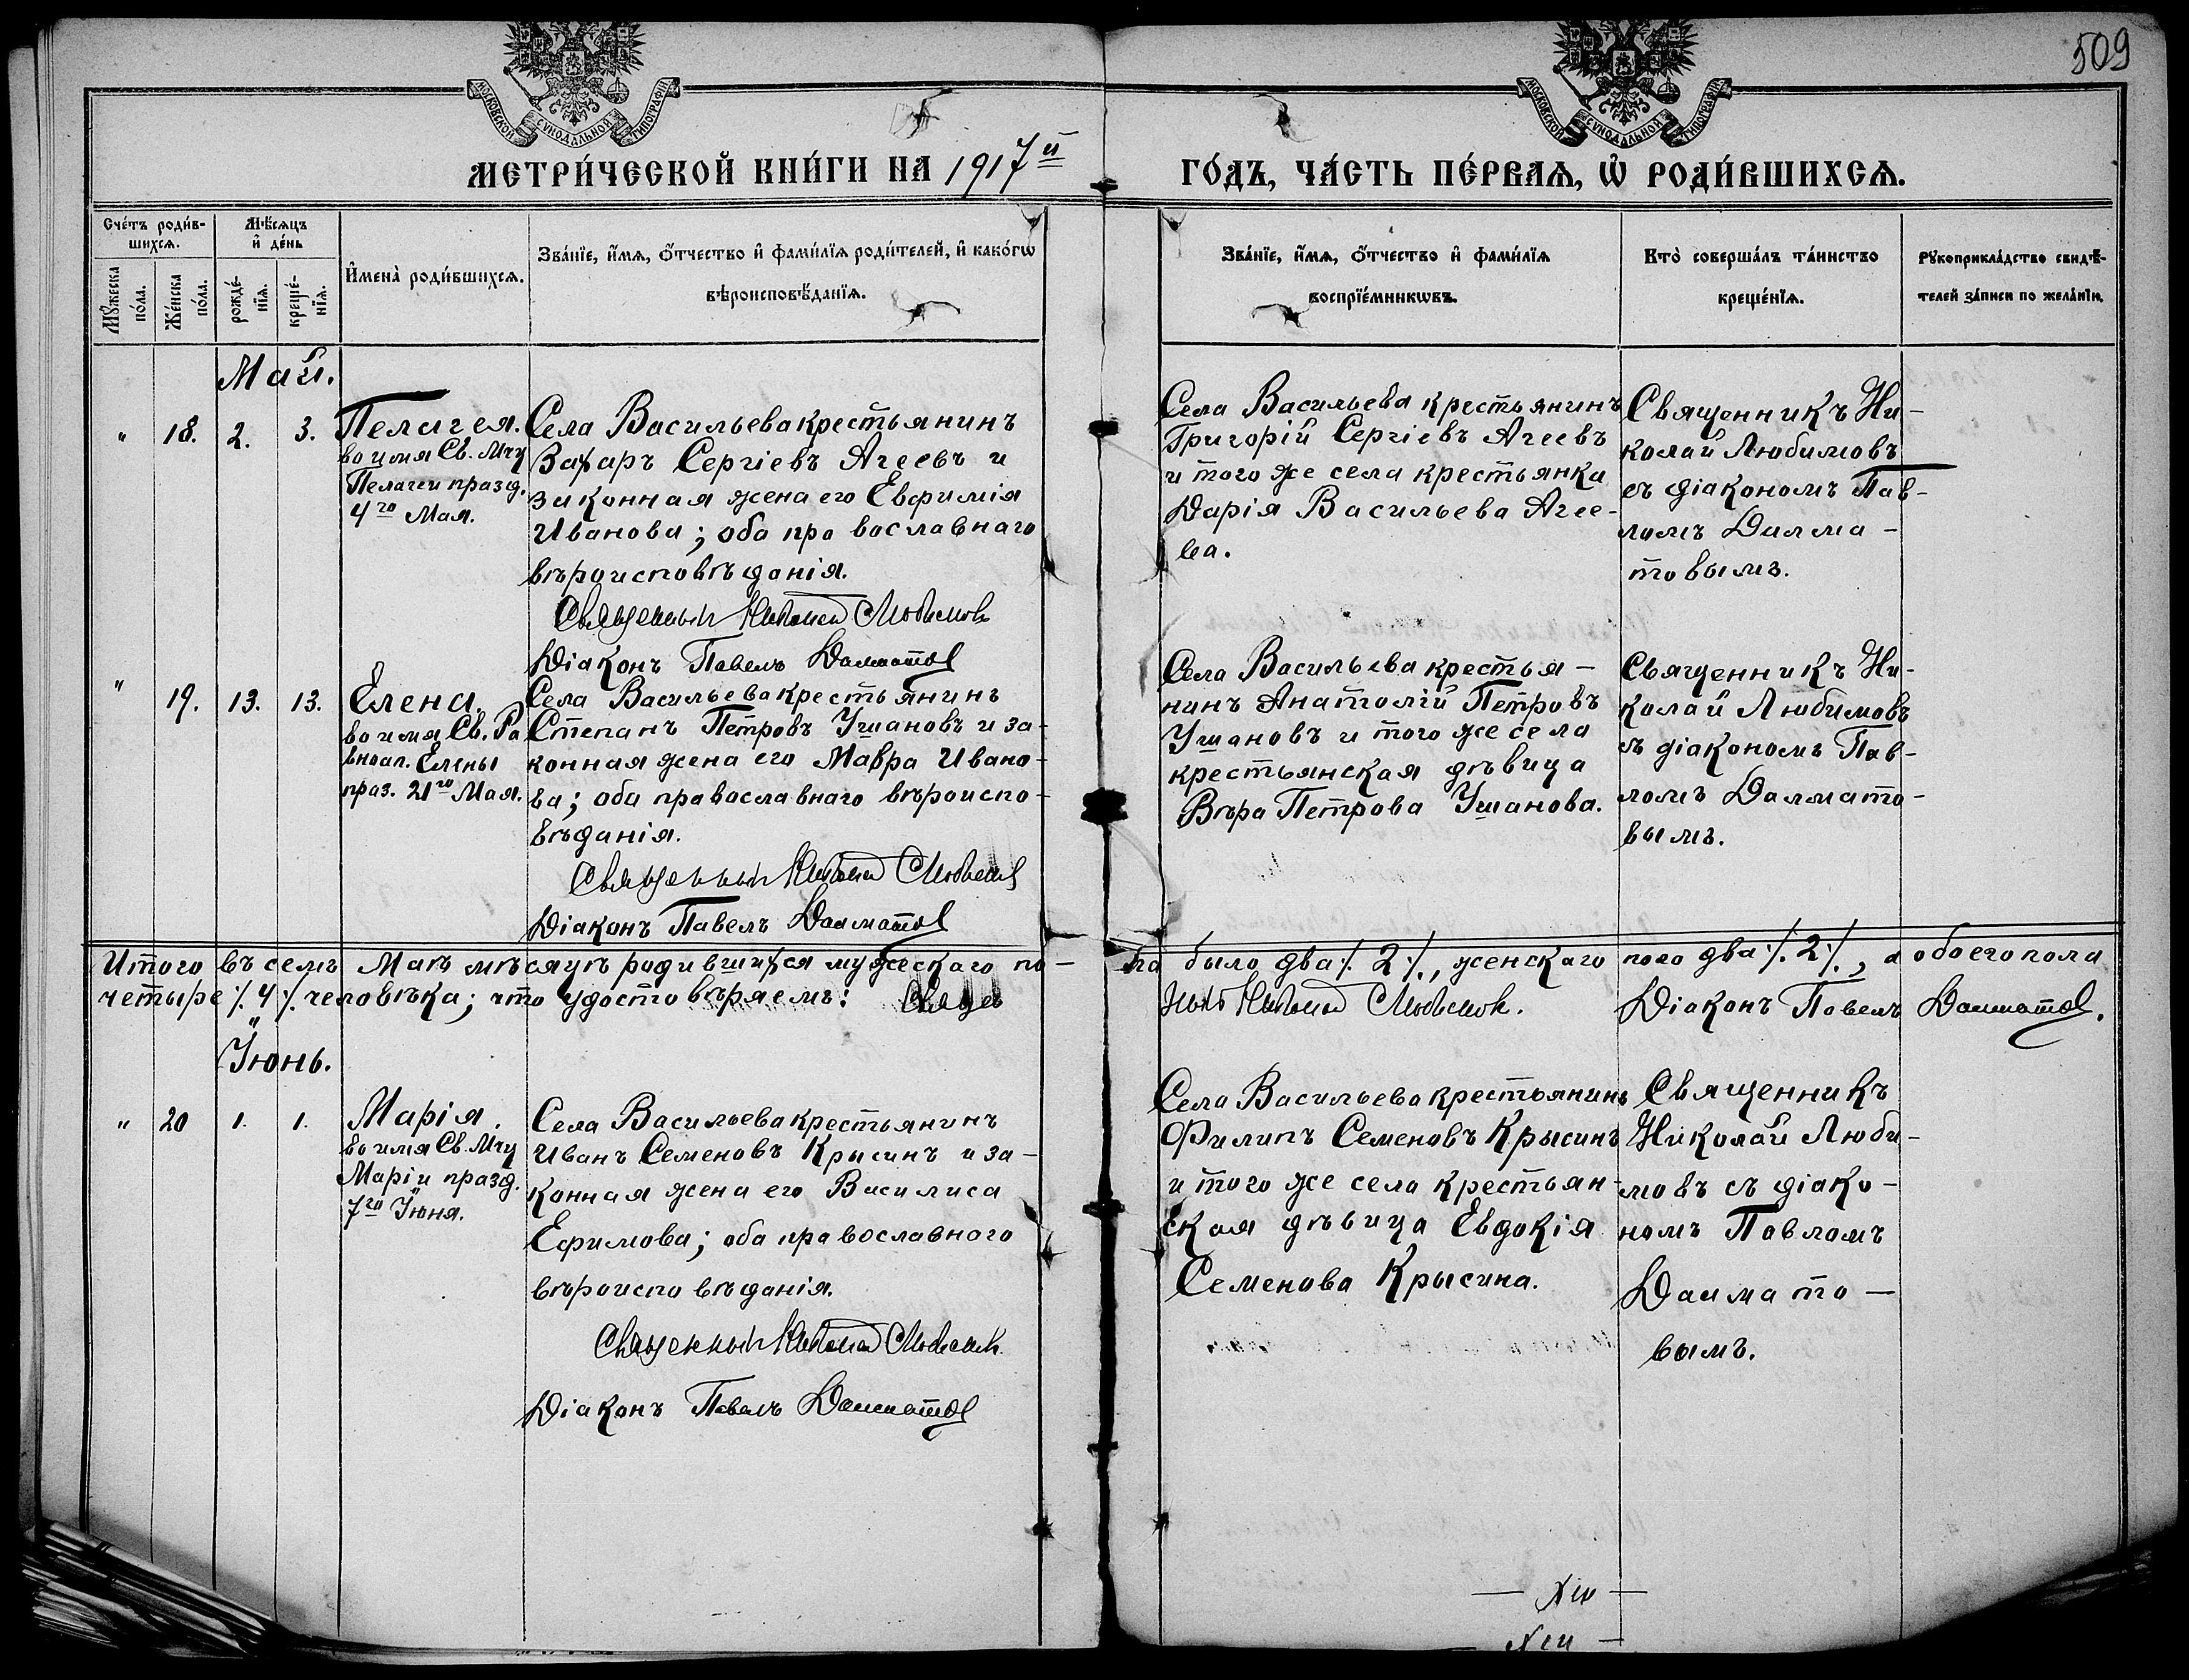 509
МОСКОВСКОЙ СѴНОДАЛЬНОЙ ТИПОГРАФІИ
МОСКОВСКОЙ СѴНОДАЛЬНОЙ ТИПОГРАФІИ
МЕТРИ́ЧЕСКОЙ КНИ́ГИ НА 1917й ГО́ДЪ, ЧА́СТЬ ПЕ́РВАѦ, Ѡ҆ РОДИ́ВШИХСѦ.
Сче́тъ роди́в-
шихсѧ.
Мѣ́сѧцъ
и҆ де́нь
Мꙋ́жеска
по́ла.
Же́нска
по́ла.
рожде́-
нїѧ.
креще́-
нїѧ.
И҆мена̀ роди́вшихсѧ.
Зва́нїе, и҆́мѧ, ѻ҆́тчество и҆ фами́лїѧ роди́телей, и҆ како́гѡ
вѣроисповѣ́данїѧ.
Зва́нїе, и҆́мѧ, ѻ҆́тчество и҆ фами́лїѧ
воспрїе́мникѡвъ.
Кто̀ соверша́лъ та́инство
креще́нїѧ.
Рꙋкоприкла́дство свидѣ́-
телей за́писи по жела́нїю.
Май.
" 18. 2. 3.
Пелагея.
во имя Св. Мчц
Пелагеи празд.
4го Мая.
Села Васильева крестьянинъ
Захаръ Сергіевъ Агеевъ и
законная жена его Евфимія
Иванова; оба православнаго
вѣроисповѣданія.
Священникъ Николай Любимовъ
Діаконъ Павелъ Далматовъ
Села Васильева крестьянинъ
Григорій Сергіевъ Агеевъ
и того же села крестьянка
Дарія Васильева Агее-
ва.
Священникъ Ни-
колай Любимовъ
съ діакономъ Пав-
ломъ Далма-
товымъ.
" 19. 13. 13.
Елена.
во имя Св. Ра
вноап. Елены
праз. 21го Мая.
Села Васильева крестьянинъ
Степанъ Петровъ Ушановъ и за-
конная жена его Мавра Ивано-
ва; оба православнаго вѣроиспо-
вѣданія.
Священникъ Николай Любимовъ
Діаконъ Павелъ Далматовъ
Села Васильева крестья-
нинъ Анатолій Петровъ
Ушановъ и того же села
крестьянская дѣвица
Вѣра Петрова Ушанова.
Священникъ Ни-
колай Любимовъ
съ діакономъ Пав-
ломъ Далмато-
вымъ.
Итого въ семъ Маѣ мѣсяцѣ родившихся мужескаго по-ла было два ⁒ 2 ⁒, женскаго пола два ⁒ 2 ⁒, а обоего пола
четыре ⁒ 4 ⁒ человѣка; что удостовѣряемъ: Священникъ Николай Любимовъ. Діаконъ Павелъ Далматовъ.
Іюнь.
" 20 1. 1.
Марія.
во имя Св. Мчц
Маріи празд.
7го Іюня.
Села Васильева крестьянинъ
Иванъ Семеновъ Крысинъ и за-
конная жена его Василиса
Ефимова; оба православнаго
вѣроисповѣданія.
Священникъ Николай Любимовъ
Діаконъ Павелъ Далматовъ
Села Васильева крестьянинъ
Филипъ Семеновъ Крысинъ
и того же села крестьян-
ская дѣвица Евдокія
Семенова Крысина.
Священникъ
Николай Люби-
мовъ съ діако-
номъ Павломъ
Далмато-
вымъ.